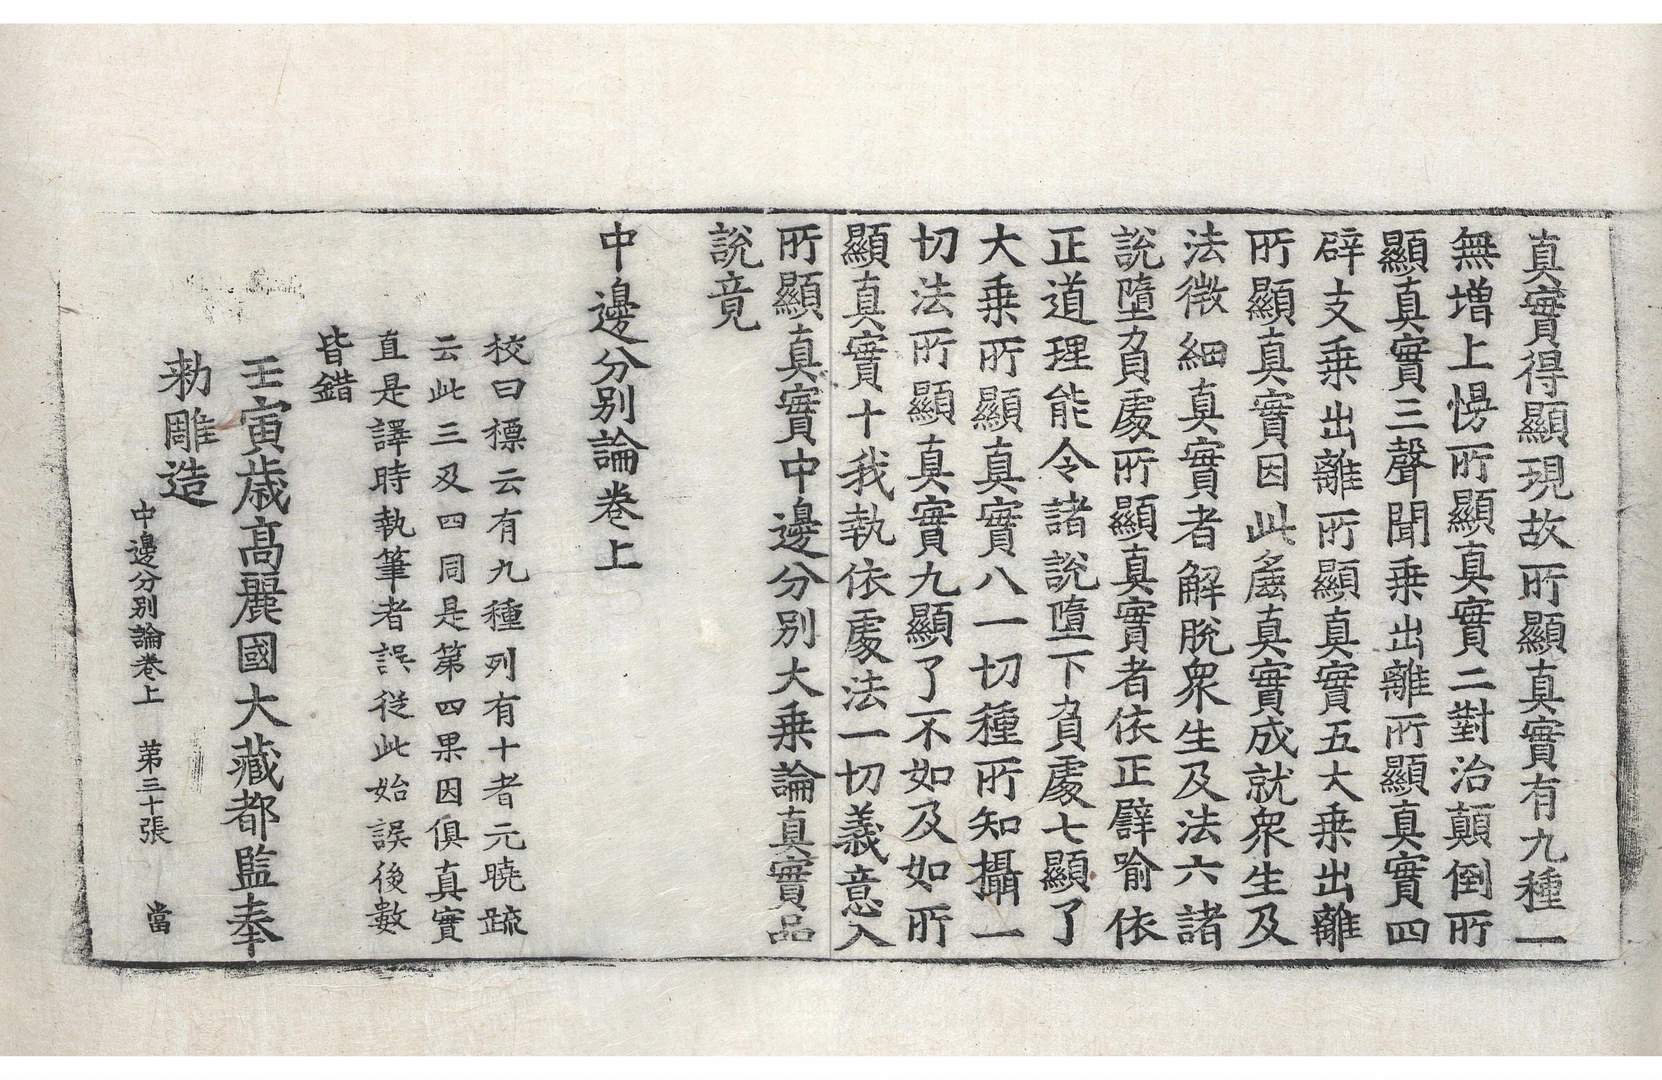 真實得顯現故所顯真實有九種一
無增上慢所顯真實二對治顛倒所
顯真實三聲聞乗出離所顯真實四
辟支乗出離所顯真實五大乗出離
所顯真實因此麁真實成就衆生及
法微細真實者解脫衆生及法六諸
說墮負處所顯真實者依正譬喻依
正道理能令諸說墮下負處七顯了
大乗所顯真實八一切種所知攝一
切法所顯真實九顯了不如及如所
顯真實十我執依處法一切義意入
所顯真實中邊分別大乗論真實品
說竟
中邊分別論卷上
校曰標云有九種列有十者元曉疏
云此三及四同是第四果因俱真實
直是譯時執筆者誤從此始誤後數
皆錯
壬寅歲高麗國大藏都監奉
勅雕造
中邊分別論卷上 第三十張 當